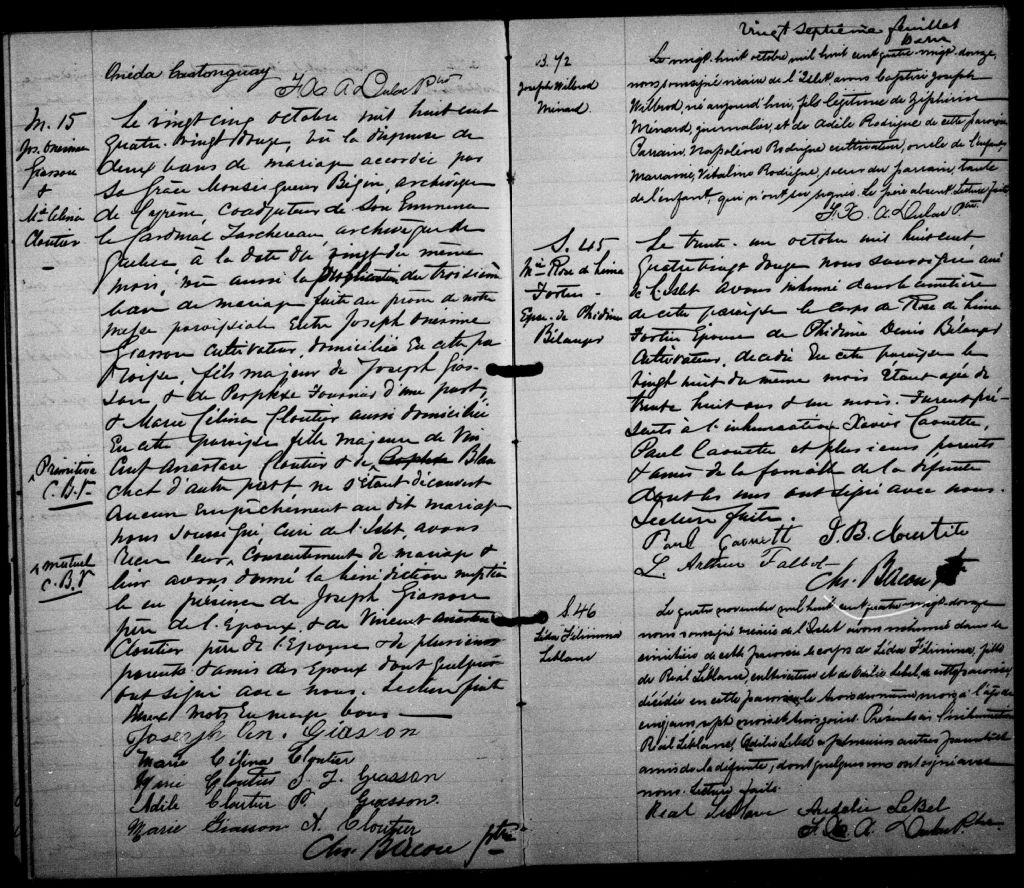 Onéda Castonguay
F. X. A. Dubé Ptre
M. 15
Jos. Onesime
Giasson
&
Mie Célina
Cloutier
Le vingt cinq octobre mil huit cent
quatre-vingt douze, vu la dispense de
deux bans de mariage accordée par
Sa Grâce Monseigneur Bégin, archevêque
de Cyrène, coadjuteur de Son Eminence
le Cardinal Taschereau archevêque de
Québec, à la date du vingt du même
mois, vu aussi la publication du troisième
ban de mariage faite au prône de notre
messe paroissiale entre Joseph Onésime
Giasson cultivateur, domicilié en cette pa
roisse, fils majeur de Joseph Gias-
son & de Perphexe Fournier d'une part,
& Marie Célina Cloutier aussi domiciliée
en cette paroisse fille majeure de Vin
cent Anastase Cloutier & de Blan
chet d'autre part ne s'étant découvert
aucun empêchement au dit mariage
nous soussigné, curé de l'Islet, avons
reçu leur consentement de mariage &
leur avons donné la bénédiction nuptia
le en présence de Joseph Giasson
père de l'Epoux, & de Vincent Anastase
Cloutier père de l'Epouse & de plusieurs
parents & amis des Epoux dont quelques
ont signé avec nous. Lecture faite
Deux mots en marge bons
Primitive
C. B. P
mutuel
C. B. P
Joseph On. Giasson
Marie Célina Cloutier
Marie Cloutier S. J. Giasson
Adile Cloutier P. Giasson
Marie Giasson A. Cloutier
Chs. Bacon Ptre
Vingt septième feuillet
B. 72
Joseph Wilbrod
Ménard
Le vingt-huit octobre mil huit cent quatre-vingt-douze,
nous soussigné vicaire de l'Islet avons baptisé Joseph
Wilbrod, né aujourd'hui, fils légitime de Zéphirin
Ménard, journalier, et de Adèle Rodrigue de cette paroisse
Parrain, Napoléon Rodrigue cultivateur, oncle de l'enfant,
Marraine, Vitaline Rodrigue, soeur du parrain, tante
de l'enfant, qui n'ont su signer. Le père absent. Lecture faite
F. X. A. Dubé Ptre.
S. 45
Mie Rose de Lima
Fortin
Epse. de Phidime
Bélanger
Le trente-un octobre mil huit cent
quatre vingt douze nous soussigné curé
de l'Islet avons inhumé dans le cimetière
de cette paroisse le corps de Rose de Lima
Fortin Epouse de Phidime Denis Bélanger
cultivateur, décédée en cette paroisse le
vingt huit du même mois étant agée de
trente huit ans & un mois. Furent pré-
sents à l'inhumation Xavier Caouette,
Paul Caouette et plusieurs parents
& amis de la famille de la défunte
dont les uns ont signé avec nous.
Lecture faite.
Paul Caouett J. B. Cloutier
L. Arthur Talbot
Chs. Bacon Ptre
S. 46
Lidia Filimina
Leblanc
Le quatre novembre mil huit cent quatre-vingt-douze
nous soussigné vicaire de l'Islet avons inhumé dans le
cimetière de cette paroisse le corps de Lidia Filimina, fille
de Réal Leblanc, cultivateur et de Odilie Lebel, de cette paroisse,
décédée en cette paroisse le trois du même mois à l'âge de
cinq ans sept mois et treize jours. Présents à l'inhumation
Réal Leblanc, Odilie Lebel et plusieurs autres parents et
amis de la défunte, dont quelques uns ont signé avec
nous. Lecture faite.
Real Leblanc LeBel
F. X. A. Dubé Ptre.